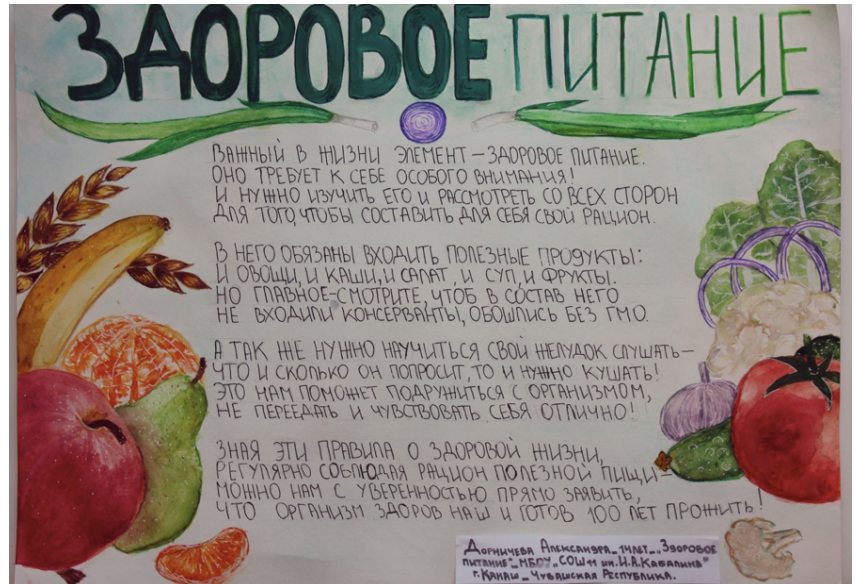 ЗДОРОВОЕ ПИТАНИЕ
ВАЖНЫЙ В ЖИЗНИ ЭЛЕМЕНТ – ЗДОРОВОЕ ПИТАНИЕ.
ОНО ТРЕБУЕТ К СЕБЕ ОСОБОГО ВНИМАНИЯ!
И НУЖНО ИЗУЧИТЬ ЕГО И РАССМОТРЕТЬ СО ВСЕХ СТОРОН
ДЛЯ ТОГО, ЧТОБЫ СОСТАВИТЬ ДЛЯ СЕБЯ СВОЙ РАЦИОН.
В НЕГО ОБЯЗАНЫ ВХОДИТЬ ПОЛЕЗНЫЕ ПРОДУКТЫ:
И ОВОЩИ, И КАШИ, И САЛАТ, И СУП, И ФРУКТЫ.
НО ГЛАВНОЕ-СМОТРИТЕ, ЧТОБ В СОСТАВ НЕГО
НЕ ВХОДИЛИ КОНСЕРВАНТЫ, ОБОШЛИСЬ БЕЗ ГМО.
А ТАК ЖЕ НУЖНО НАУЧИТЬСЯ СВОЙ ЖЕЛУДОК СЛУШАТЬ –
ЧТО И СКОЛЬКО ОН ПОПРОСИТ, ТО И НУЖНО КУШАТЬ!
ЭТО НАМ ПОМОЖЕТ ПОДРУЖИТЬСЯ С ОРГАНИЗМОМ,
НЕ ПЕРЕЕДАТЬ И ЧУВСТВОВАТЬ СЕБЯ ОТЛИЧНО!
ЗНАЯ ЭТИ ПРАВИЛА О ЗДОРОВОЙ ЖИЗНИ,
РЕГУЛЯРНО СОБЛЮДАЯ РАЦИОН ПОЛЕЗНОЙ ПИЩИ –
МОЖНО НАМ С УВЕРЕННОСТЬЮ ПРЯМО ЗАЯВИТЬ,
ЧТО ОРГАНИЗМ ЗДОРОВ НАШ И ГОТОВ 100 ЛЕТ ПРОЖИТЬ!
Дорничева Александра_14лет_„Здоровое
питание"_МБОУ„СОШ 11 им. И.А. Кабалина"
г. Канаш_Чувашская Республика.